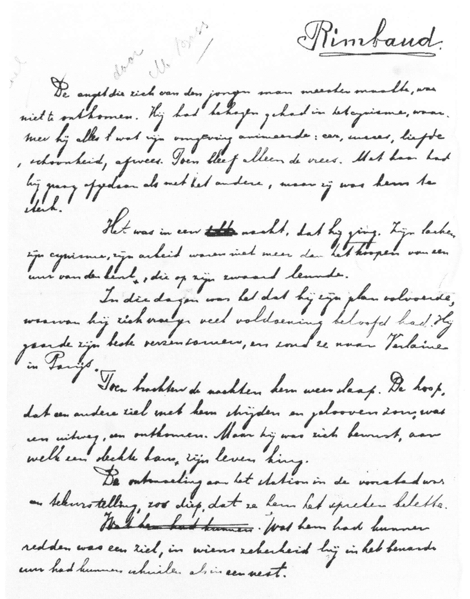 door
M. Boas
Rimbaud.
De angst die zich van den jongen man meester maakte, was
niet te ontkomen. Hij had behagen gehad in het cynisme, waar-
mee hij alles wat zijn omgeving animeerde: eer, succes, liefde
, schoonheid, afwees. Toen bleef alleen de vrees. Met haar had
hij graag afgedaan als met het andere, maar zij was hem te
sterk.
Het was in een nacht, dat hij ging. Zijn lachen,
zijn cynisme, zijn arbeid waren niet meer dan het hopen van een
uur van de held, die op zijn zwaard leunde.
In die dagen was het dat hij zijn plan volvoerde,
waarvan hij zich vroeger veel voldoening beloofd had. Hij
gaarde zijn beste verzen samen, en zond ze naar Verlaine
in Parijs.
Toen brachten de nachten hem weer slaap. De hoop,
dat een andere ziel met hem strijden en gelooven zou, was
een uitweg, een ontkomen. Maar hij was zich bewust, aan
welk een slechte kans, zijn leven hing.
De ontmoeting aan het station in de voorstad was
een teleurstelling, zoo diep, dat ze hem het spreken belette.
Wat hem had kunnen. Wat hem had kunnen
redden was een ziel, in wiens zekerheid hij in het benarde
uur had kunnen schuilen als in een nest.